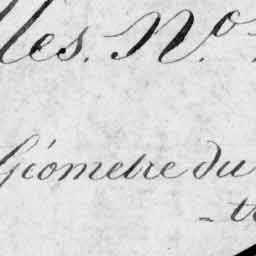 les. N.º
Géometre du
- te